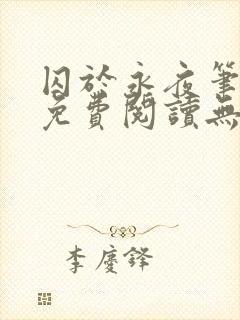 囚於永夜筆
免費閱讀無
李慶鐸